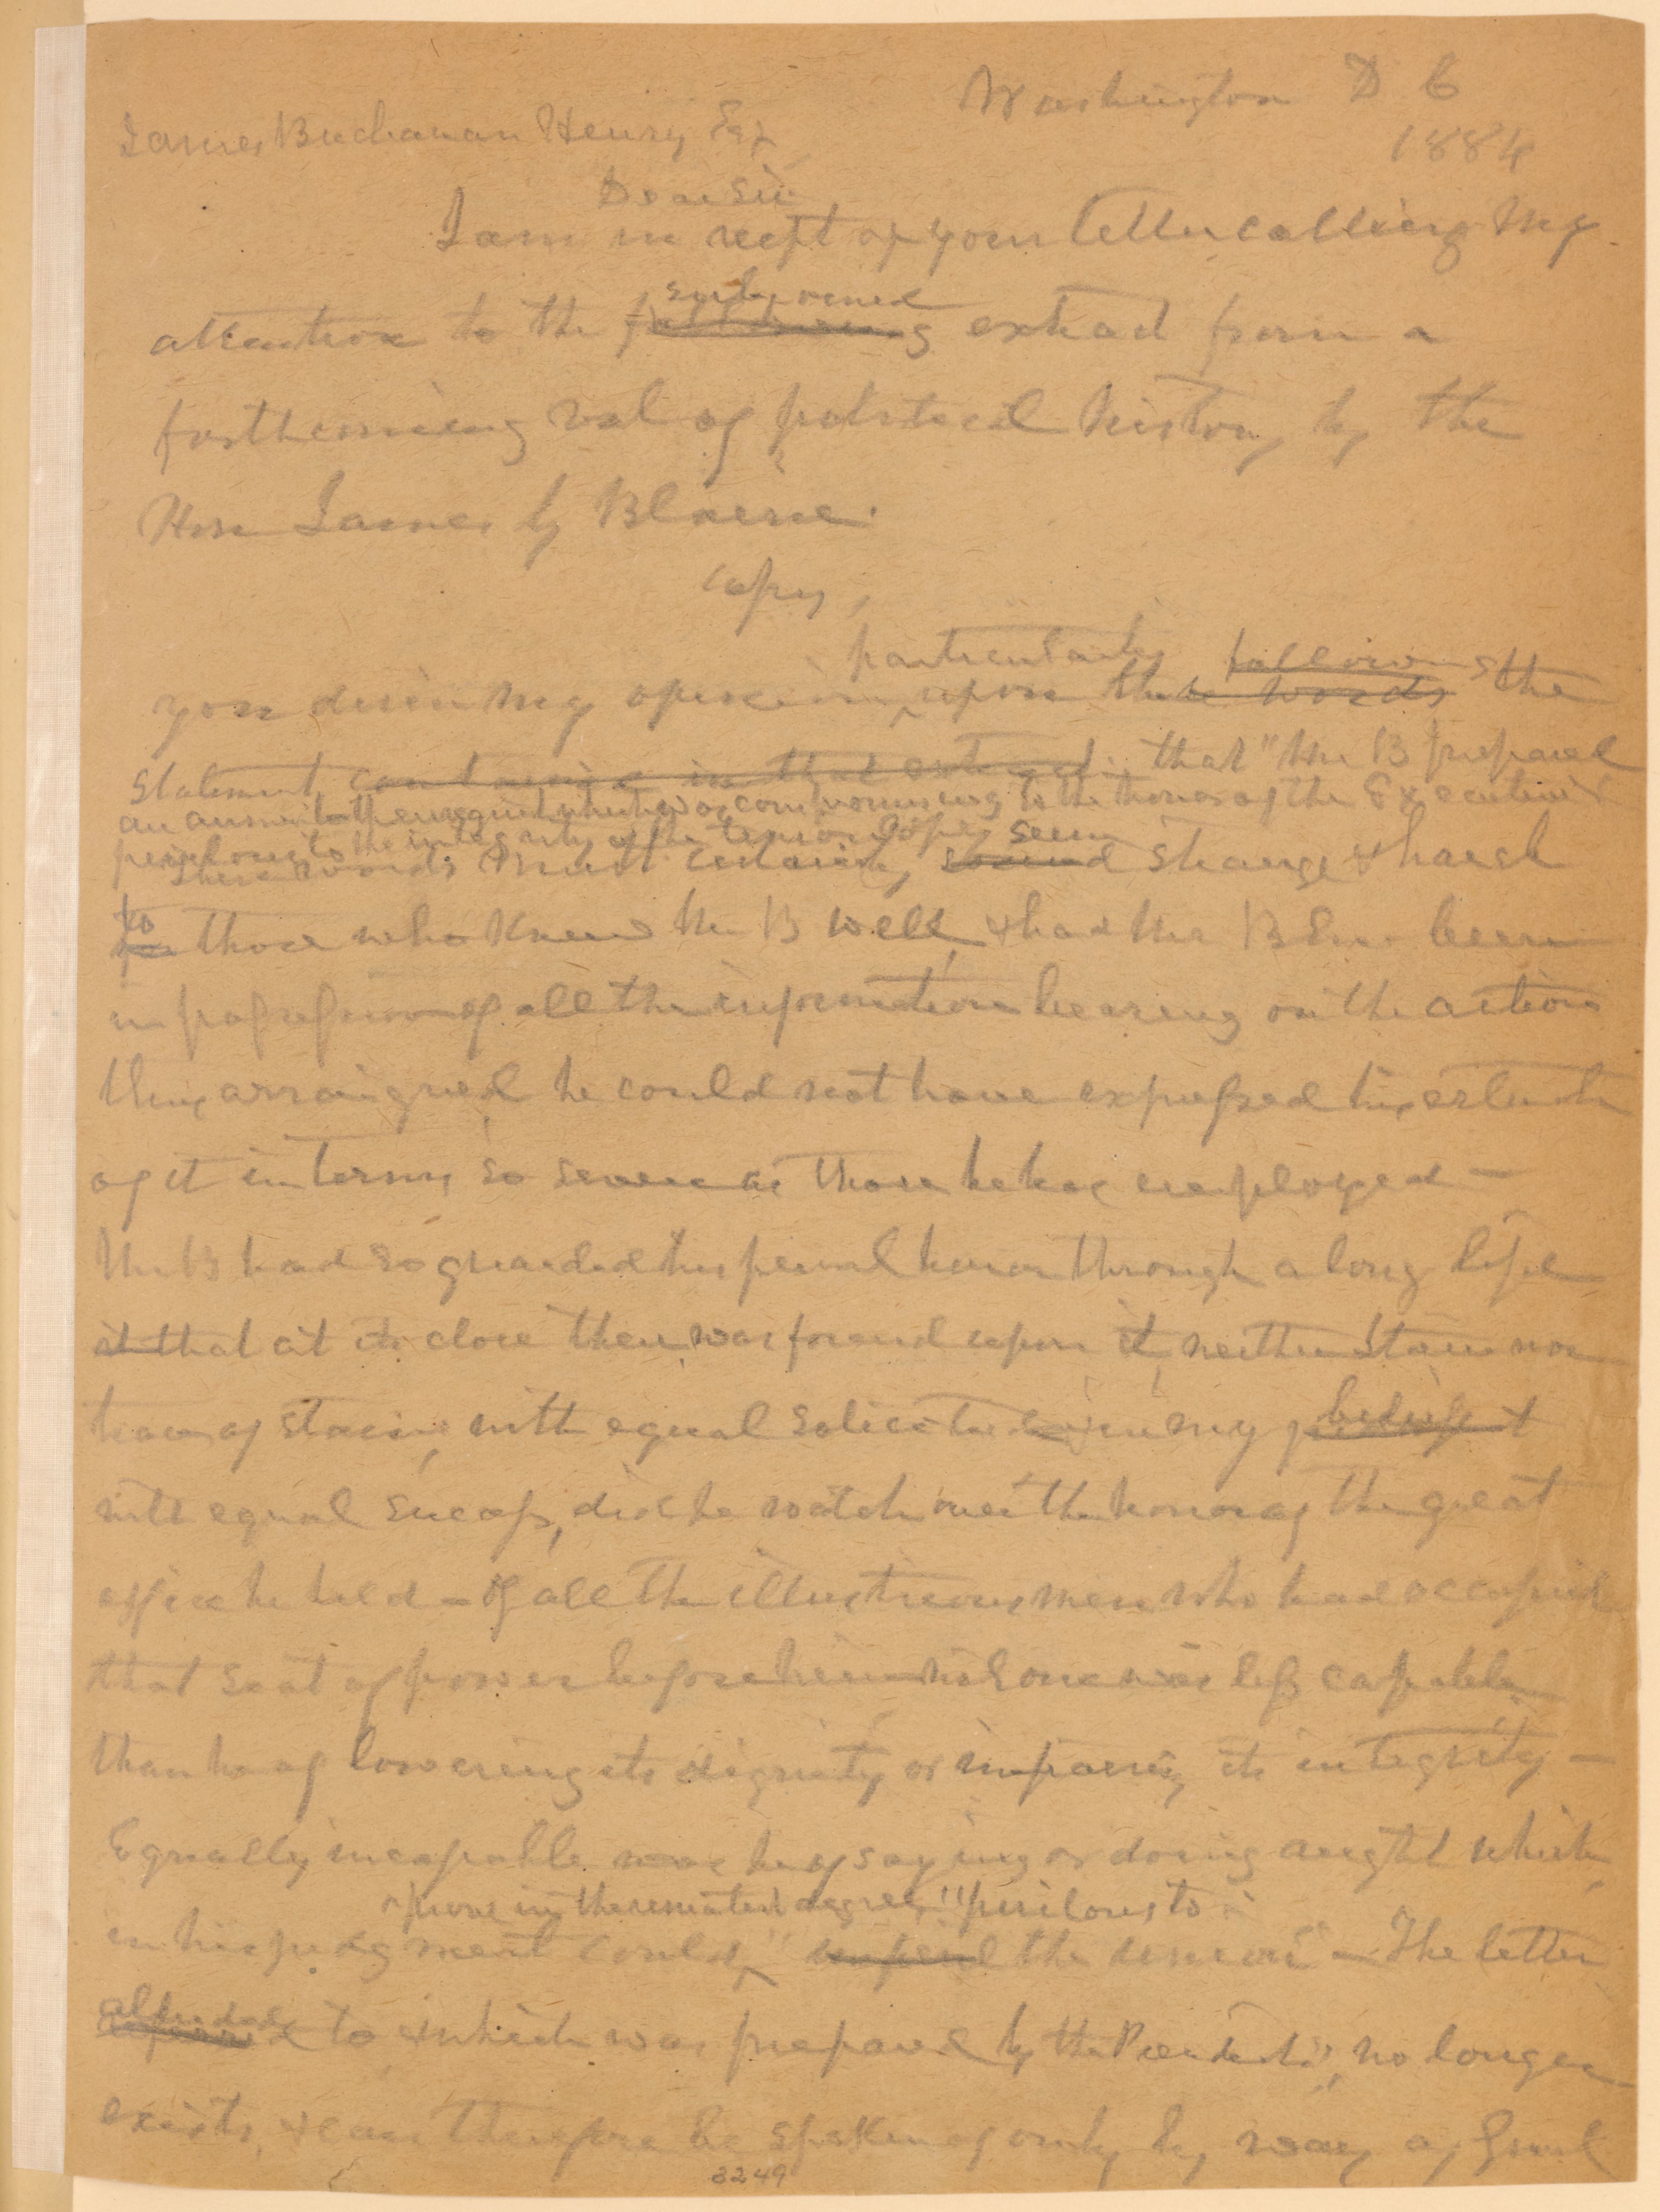 Washington D C
1884
James Buchanan Henry Esq
Dear Sir
I am in recpt of your letter calling my
subjoined
attention to the following extract from a
forthcoming vol of political history by the
Hon James G Blaine.
Copy,
particularly following
you desire my opinion upon the words the
statement contained in that extract, that "Mr B prepared
an answer to their request which was compromising to the honor of the Executive &
perilous to the integrity of the Union." seem
These words must certainly sound strange & harsh
to
for those who knew Mr B well, & had Mr Blaine been
in possession of all the information bearing on the action
thus arraigned he could not have expressed his estimate
of it in terms so severe as those he has employed —
Mr B had so guarded his personal honor through a long life
it that at its close there was found upon it, neither stain nor
trace of stain, with equal solicitude & in my belief
with equal success, did he watch over the honor of the great
office he held – Of all the illustrious men who had occupied
that seat of power before him no one was less capable
than he of lowering its dignity or impairing its integrity —
Equally incapable was he of saying or doing aught which
prove in the remotest degree "perilous to
in his judgment could " imperil the union" — The letter
alluded
to & which was prepared by the President, no longer
exists, & can therefore be spoken of only by way of
3249